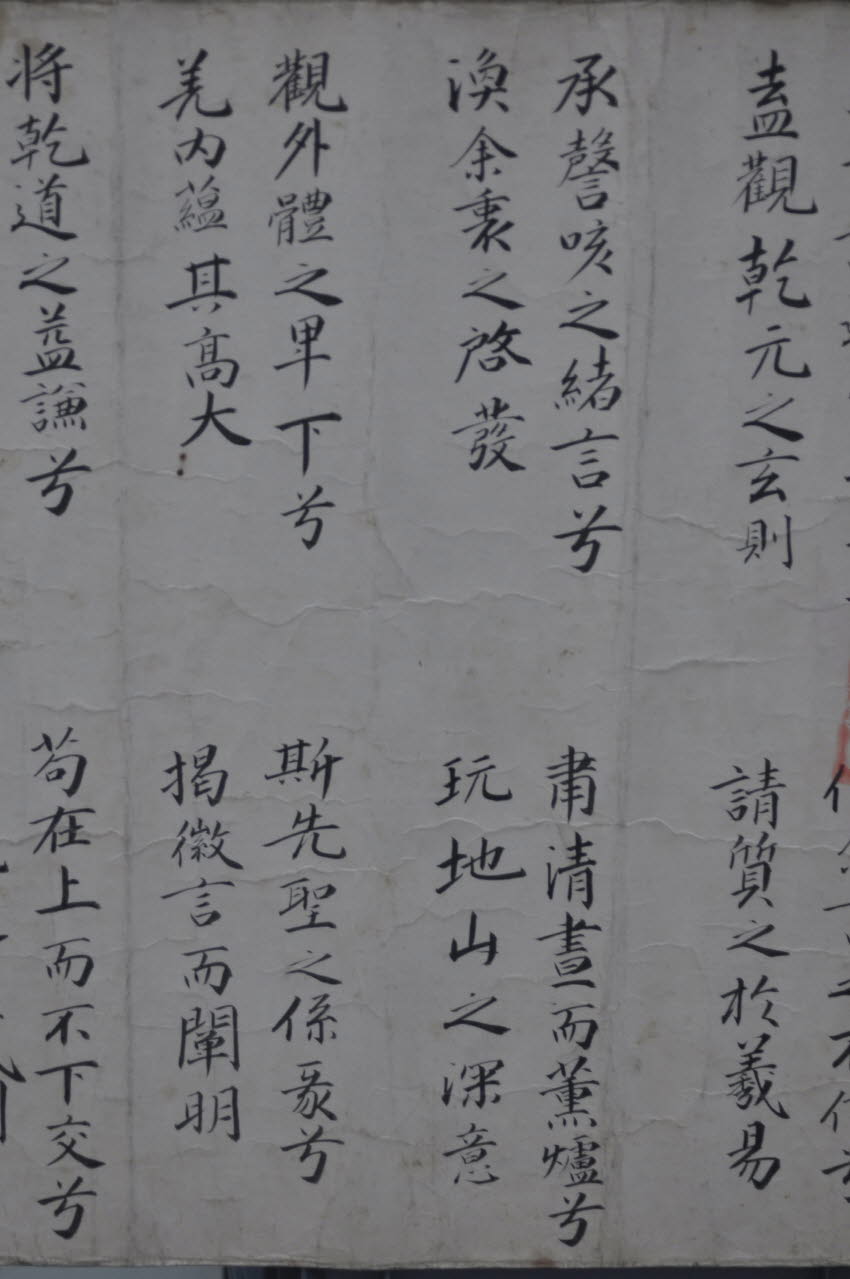 盍觀乾元之玄則 請質之於羲易
承謦咳之緒言兮 肅清晝而薰爐兮
渙余衷之啓發 玩地山之深意
觀外體之卑下兮 斯先聖之係彖兮
羌内蘊其髙大 揭微言而闡明
将乾道之益謙兮 苟在上而不下交兮